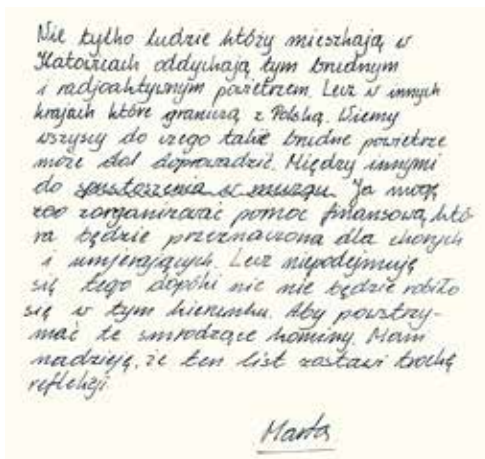 Nie tylko ludzie którzy mieszkają w
Katowicach oddychają tym brudnym
i radjoaktywnym powietrzem. Lecz w innych
krajach które graniczą z Polską. Wiemy
wszyscy do czego takie brudne powietrze
może doprowadzić. Między innymi
do spustoszenia w muzgu. Ja mogę
zorganizować pomoc finansową, któ-
ra będzie przeznaczona dla chorych
i umierających. Lecz niepodejmuję
się tego dopóki nic nie będzie robiło
się w tym kierunku. Aby powstrzy-
mać te smrodzące kominy. Mam
nadzieję, że ten list zostawi trochę
refleksji.
Marta